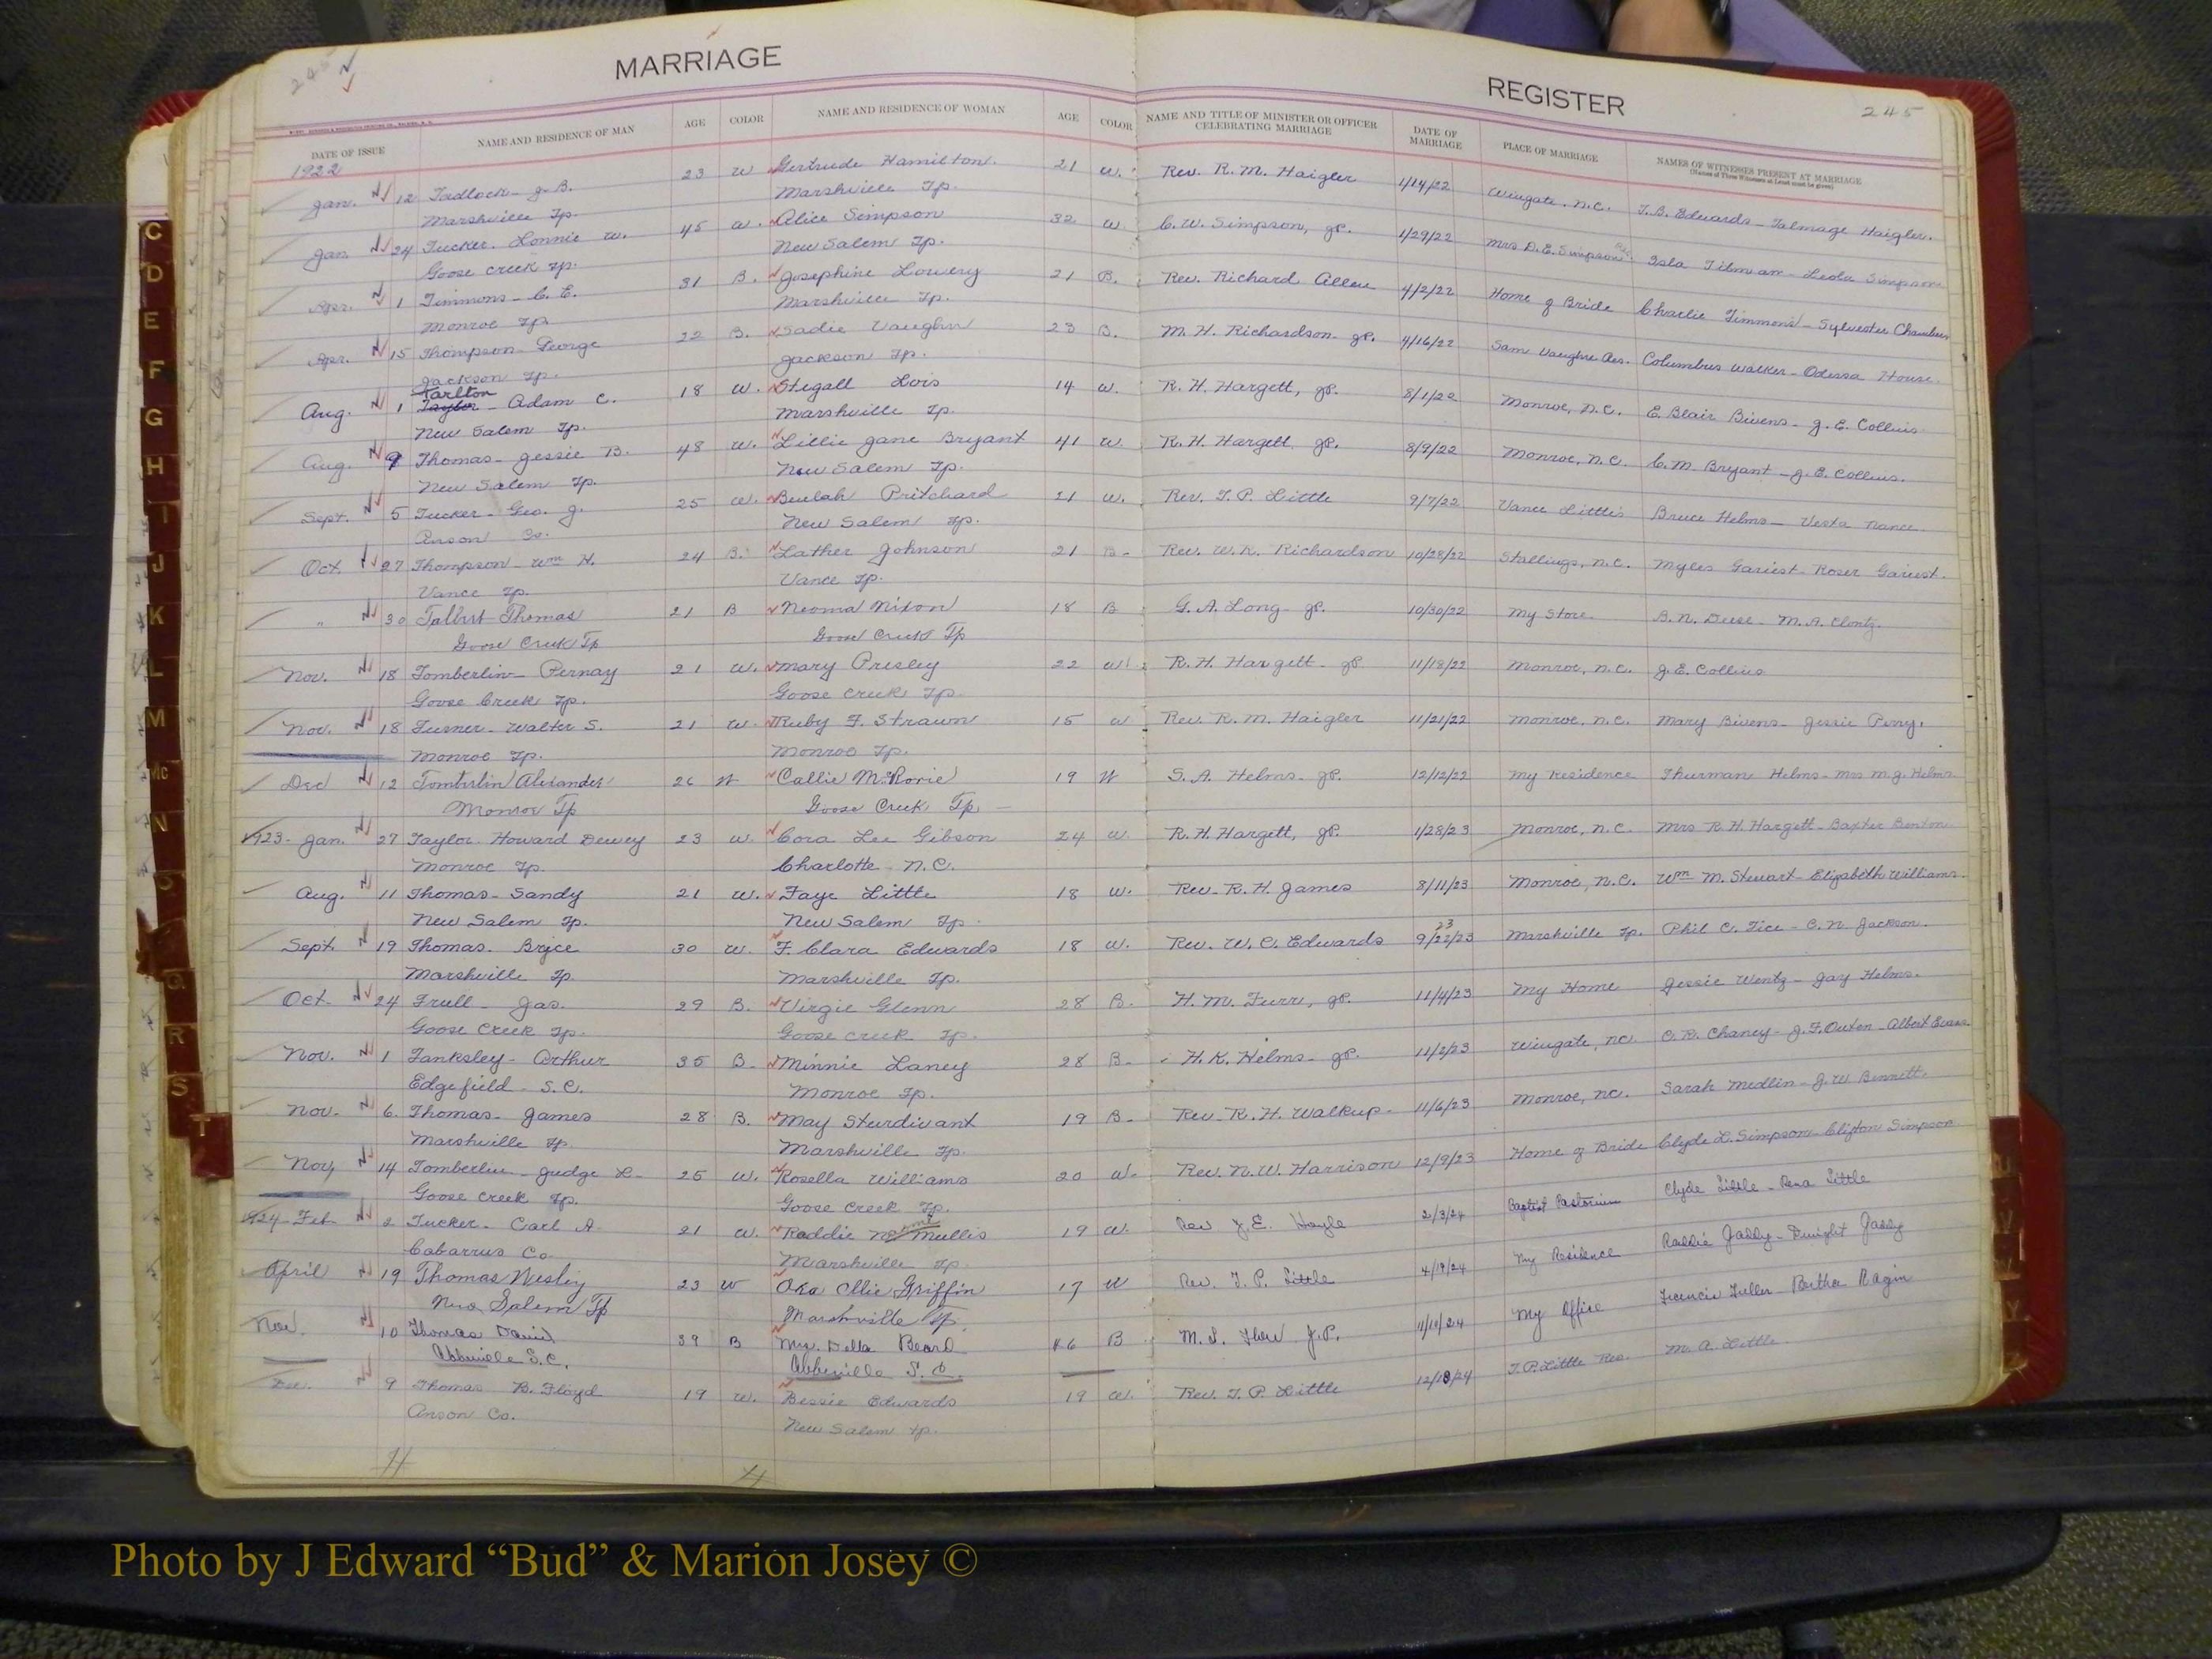 MARRIAGE
REGISTER
245
DATE OF ISSUE NAME AND RESIDENCE OF MAN AGE COLOR NAME AND RESIDENCE OF WOMAN AGE COLOR NAME AND TITLE OF MINISTER OR OFFICER CELEBRATING MARRIAGE DATE OF MARRIAGE PLACE OF MARRIAGE NAMES OF WITNESSES PRESENT AT MARRIAGE
(Names of Three Witnesses at Least must be given)
1922
Jan. 12 Tadlock - J. B. 23 W Gertrude Hamilton. 21 W. Rev. R. M. Haigler 1/14/22 Wingate, N.C. T. B. Edwards - Talmage Haigler.
Marshville Tp. Marshville Tp.
Jan 24 Tucker. Lonnie W. 45 W. Alice Simpson 32 W C. W. Simpson, JP. 1/29/22 Mrs D. E. Simpson Leola Simpson
Goose Creek Tp. New Salem Tp.
Apr. 1 Timmons - C. E. 31 B. Josephine Lowery 21 B. Rev. Richard Allen 4/2/22 Home of Bride Charlie Timmons - Sylvester Chambers
Monroe Tp. Marshville Tp.
Apr. 15 Thompson - George 22 B. Sadie Vaughn 23 B. M. H. Richardson - JP. 4/16/22 Sam Vaughn Res. Columbus Walker - Odessa House.
Jackson Tp. Jackson Tp.
Tarlton
Aug. 1 Taylor - Adam C. 18 W. Stegall Lois 14 W. R. H. Hargett, JP. 8/1/22 Monroe, N.C. E. Blair Bivens - J. E. Collins
New Salem Tp. Marshville Tp.
Aug. 9 Thomas - Jessie B. 48 W. Lillie Jane Bryant 41 W. R. H. Hargett, JP. 8/9/22 Monroe, N.C. C. M. Bryant - J. E. Collins.
New Salem Tp. New Salem Tp.
Sept. 5 Tucker - Geo. J. 25 W. Beulah Pritchard 21 W. Rev. T. P. Little 9/7/22 Vance Little's Bruce Helms - Vesta Nance
Anson Co. New Salem Tp.
Oct. 27 Thompson - Wm H. 24 B. Lather Johnson 21 B - Rev. W. R. Richardson 10/28/22 Stallings, N.C. Myles Gariest - Roser Gariest.
Vance Tp. Vance Tp.
" 30 Talbert Thomas 21 B Neoma Nixon 18 B G. A. Long - JP. 10/30/22 My Store B. N. Deese - M. A. Clontz.
Goose Creek Tp Goose Creek Tp
Nov. 18 Tomberlin - Pernay 21 W. Mary Presley 22 W R. H. Hargett - JP 11/18/22 Monroe, N.C. J. E. Collins
Goose Creek Tp. Goose Creek Tp.
Nov. 18 Turner - Walter S. 21 W. Ruby F. Strawn 15 W Rev. R. M. Haigler 11/21/22 Monroe, N.C. Mary Bivens - Jessie Perry.
Monroe Tp. Monroe Tp.
Dec 12 Tomberlin Alexander 26 W Callie McRorie 19 W S. A. Helms - JP. 12/12/22 My Residence Thurman Helms - Mrs M. J. Helms
Monroe Tp Goose Creek Tp -
1923 - Jan. 27 Taylor - Howard Dewey 23 W. Cora Lee Gibson 24 W. R. H. Hargett, JP. 1/28/23 Monroe, N.C. Mrs R. H. Hargett - Baxter Benton
Monroe Tp. Charlotte N.C.
Aug. 11 Thomas - Sandy 21 W. Faye Little 18 W. Rev - R. H. James 8/11/23 Monroe, N.C. Wm M. Stewart - Elizabeth Williams.
New Salem Tp. New Salem Tp.
23
Sept. 19 Thomas. Bryce 30 W. F. Clara Edwards 18 W. Rev. W. C. Edwards 9/22/23 Marshville Tp. Phil C. Tice - C. N. Jackson.
Marshville Tp. Marshville Tp.
Oct. 24 Trull - Jas. 29 B. Virgie Glenn 28 B. H. M. Furr, JP. 11/4/23 My Home Jessie Wentz - Jay Helms.
Goose Creek Tp. Goose Creek Tp.
Nov. 1 Tanksley - Arthur 35 B. Minnie Laney 28 B - H. K. Helms - JP. 11/2/23 Wingate, N.C. C. R. Chaney - J. F. Outen - Albert Evans
Edgefield - S.C. Monroe Tp.
Nov. 6. Thomas - James 28 B. May Sturdivant 19 B - Rev - R. H. Walkup - 11/6/23 Monroe, N.C. Sarah Medlin - J. W. Bennett.
Marshville Tp. Marshville Tp.
Nov, 14 Tomberlin - Judge L - 25 W. Rosella Williams 20 W. Rev. N. W. Harrison 12/9/23 Home of Bride Clyde L. Simpson - Clifton Simpson
Goose Creek Tp. Goose Creek Tp.
1924 - Feb 2 Tucker - Carl A. 21 W. Raddie Mullis 19 W. Rev J. E. Hoyle 2/3/24 Baptist Pastorium Clyde Little - Rena Little
Cabarrus Co. Marshville Tp.
April 19 Thomas Wesley 23 W Oka Ollie Griffin 17 W Rev. T. P. Little 4/19/24 My Residence Raddie Gaddy - Dwight Gaddy
New Salem Tp Marshville Tp.
Nov. 10 Thomas David 39 B Mrs. Della Beard 46 B M. L. Flow J.P. 11/10/24 My Office Francis Fuller - Bertha Ragin
Abbeville S.C. Abbeville S.C.
Dec. 9 Thomas B. Floyd 19 W. Bessie Edwards 19 W. Rev. T. P. Little 12/18/24 T. P. Little Res. M. A. Little.
Anson Co. New Salem Tp.
C
D
E
F
G
H
I
J
K
L
M
Mc
N
O
Q
R
S
T
U
V
W
Y
Photo by J Edward “Bud” & Marion Josey ©